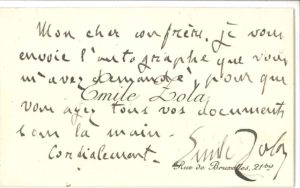 Mon cher confrère, je vous
envoie l'autographe que vous
m'avez demandé, pour que
Emile Zola
vous ayez tous vos documents
sous la main.
Cordialement.
Emile Zola
Rue de Bruxelles, 21bis